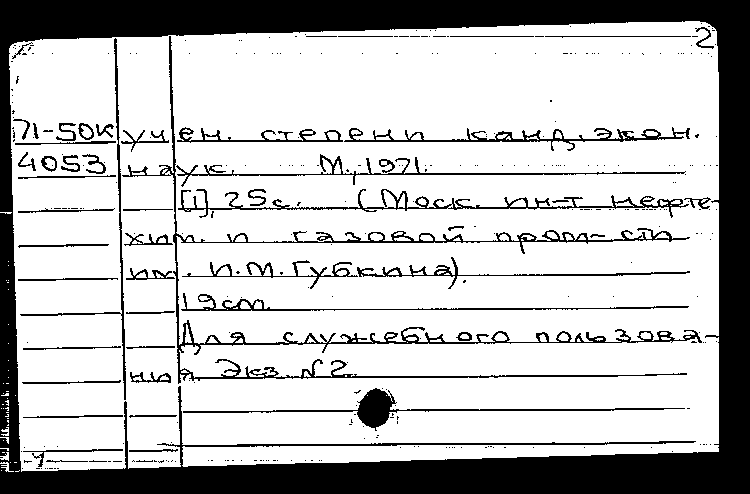 2
71-50к учен. степени канд. экон.
4053 наук. М., 1971.
[1], 25с. (Моск. ин-т нефте-
хим. и газовой пром-сти
им. И.М. Губкина).
19см.
Для служебного пользова-
ния. Экз. №2
ч